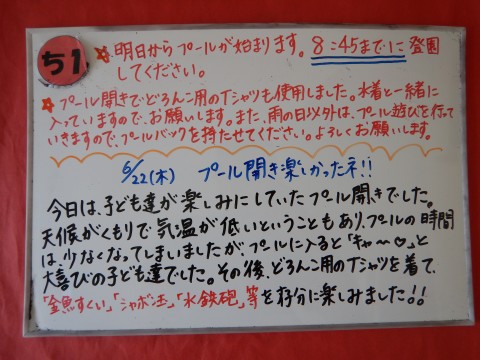 ち1
☆明日からプールが始まります。8:45までに登園
してください。
☆プール開きでどろんこ用のTシャツも使用しました。水着と一緒に
入っていますので、お願いします。また、雨の日以外は、プール遊びを行って
いきますので、プールバックを持たせてください。よろしくお願いします。
6/22(木) プール開き楽しかったネ!!
今日は、子ども達が楽しみにしていたプール開きでした。
天候がくもりで気温が低いということもあり、プールの時間
は、少なくなってしまいましたが、プールに入ると「キャ〜♡」と
大喜びの子ども達でした。その後、どろんこ用のTシャツを着て、
「金魚すくい」「シャボン玉」「水鉄砲」等を存分に楽しみました!!